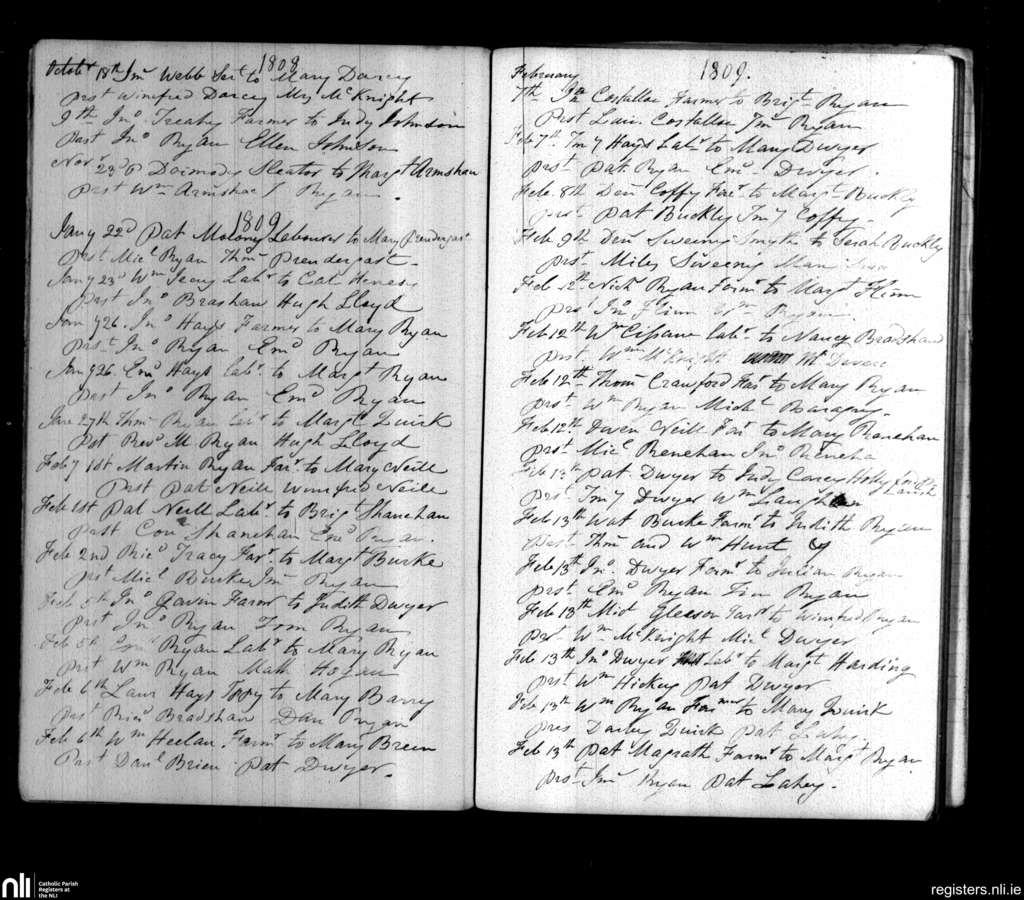 1808
Octobr 18th Jms Webb Sert to Mary Darcy
prst Winifred Darcey Mrs McKnight
9th Jno. Treahy Farmer to Judy Johnson
Past Jno Ryan Ellen Johnson
Novr 23d P Doimody Sleator to Margt Armshaw
prst Wm Armshaw Ryan.
1809
Jany 22d Pat Molony Labourer to Mary Prendergast
Prst Micl Ryan Thms Prendergast.
Jany 23d Wm Labr to Cat Henesy
Prst Jno Brashaw Hugh Lloyd
Jany 26. Jno Hays Farmer to Mary Ryan
Prst Jno Ryan Emd Ryan
Jany 26. Emd Hays Labr. to Margt Ryan
Prst Jno Ryan Emd Ryan
Jane 27th Thms Ryan Labr to Margt Quirk
Pst Revd M Ryan Hugh Lloyd
Feby 1st Martin Ryan Far. to Mary Neill
Prst Pat Neill Winifred Neille
Feb 1st Pat Neill Labr to Brigt Shanehan
Past Con Shanehan Emd Ryan.
Feb 2nd Ricd Tracy Far. to Margt Burke
pst Micl Burke Jms Ryan
Feb 5th Jno Gavin Farmr to Judith Dwyer
Prst Jno Ryan Tom Ryan
Feb 5th Ryan Labr to Mary Ryan
Prst Wm Ryan Math Hogan
Feb 6th Laur Hays to Mary Barry
prst Ricd Bradshaw Dan Ryan
Feb 6th Wm Heelan Farmr to Mary Breen
Past Danl Brien Pat Dwyer.
1809.
February
7th Jno Costalloe Farmer to Brigt Ryan
Prst Laur. Costalloe Jms Ryan
Feb 7th Timy Hays Labr to Mary Dwyer
prst Pat Ryan Emd Dwyer.
Feb. 8th Den Coffy Far. to Margt Buckly
prst Pat Buckly Timy Coffy.
Feb 9th Den Sweeny Smyth to Serah Buckley
prst Miles Sweeny Man
Feb 12th Nich Ryan Farmr to Margt Flinn
prst Jno Flinn Wm Ryan.
Feb 12th Wm Cissane Labr to Nancy Bradshaw
prst Wm McKnight Wt
Feb 12th Thoms Crawford Far to Mary Ryan
prst Wm Ryan Michl
Feb 12th Owen Neill Far to Mary Renehan
prst Micl Renehan Jno Reneha
Feb 13th Pat. Dwyer to Judy Carey Hollyford Parish
Prst Timy Dwyer Wm Laughlan
Feb 13th Wat Burke Farmr to Judith Ryan
Past Thms and Wm Hunt
Feb 13th Jno. Dwyer Farmr to Julian Ryan
Prst Emd Ryan Tim Ryan
Feb 13th Micl Gleeson Far to Winifred Ryan
pr Wm McKnight Micl Dwyer
Feb 13th Jno Dwyer Labr to Margt Harding
prst Wm Hickey Pat Dwyer
Feb 13th Wm Ryan Farmer to Mary Quirk
pres Darley Quirk Pat Lahy.
Feb 13th Pat Magrath Farmr to Margt Ryan
prst Jms Ryan Pat Lahey.
nli
Catholic Parish
Registers at
the NLI
registers.nli.ie